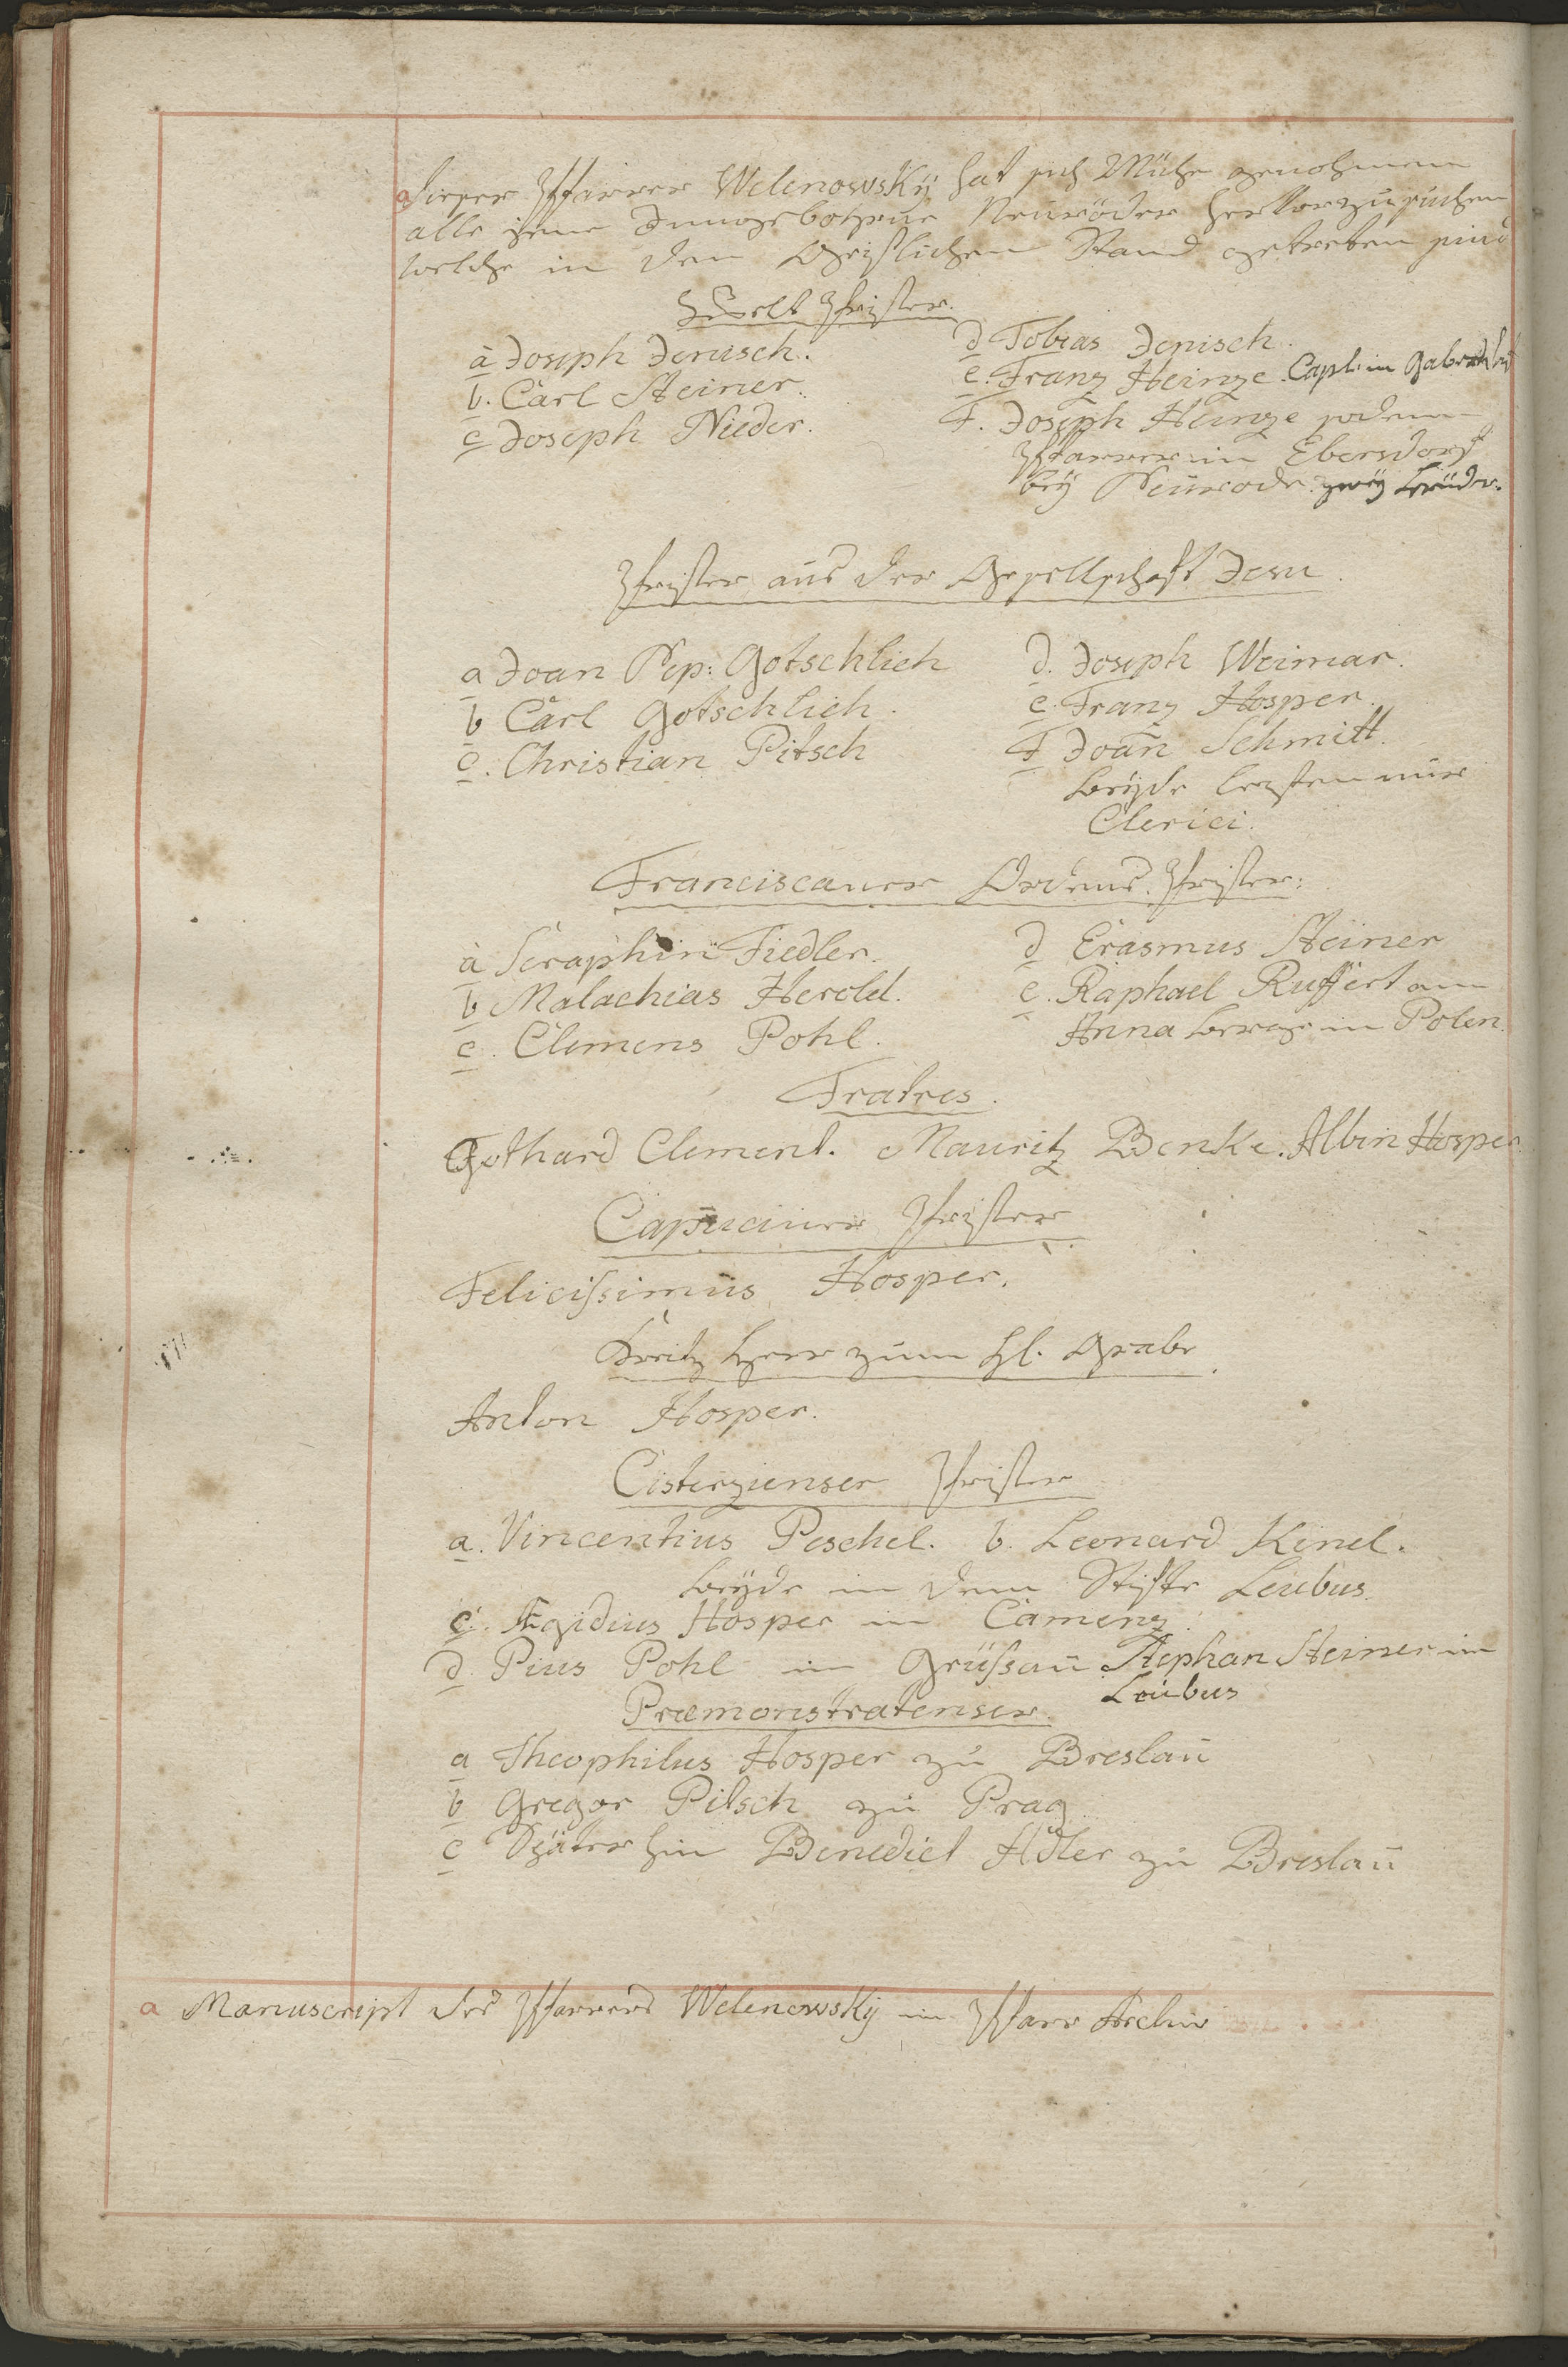 a Dieser Pfarrer Welenowskÿ hat sich Mühe genohmen
alle jene Inngebohrne Neuröder hervorzusuchen
welche in den Geistlichen Stand getreten sind
Welt Priester.
a Joseph Jenisch.
b. Carl Steiner.
c Joseph Nieder.
d Tobias Jenisch.
e. Franz Heinze. Capl. in
F. Joseph Heinze sodenn
Pfarrer in Ebersdorf
beÿ Neurode. zweÿ brüder.
Priester aus der Gesellschaft Jesu.
a Joan Nep: Gotschlich
b Carl Gotschlich.
c. Christian Pitsch
d. Joseph Weimar.
e. Franz Hosper.
F Joan Schmitt.
beÿde lezten nur
Clerici.
Franciscaner Ordens. Priester:
a Seraphin Fiedler.
b Malachias Herold.
c. Clemens Pohl.
d Erasmus Steiner
e. Raphael Ruffert am
Anna berge in Polen.
Fratres.
Gothard Clement. Mauritz Benke. Albin Hosper
Capuciner Priester
Felicissimus Hosper.
Kreitz Herr zum Hl. Grabe
Anton Hosper.
Cisterzienser Priester
a. Vincentius Peschel. b. Leonard Kinel.
beÿde in dem Stifte Leubus.
c. Ægidius Hosper in Camenz.
d. Pius Pohl in Grüssau Stephan Steiner in
Leubus
Præmonstratenser.
a Theophilus Hosper zu Breslau
b Gregor Pitsch zu Prag
c Später hin Benedict Adler zu Breslau
a Manuscript des Pfarrers Welenowskÿ im Pfarr Archiv